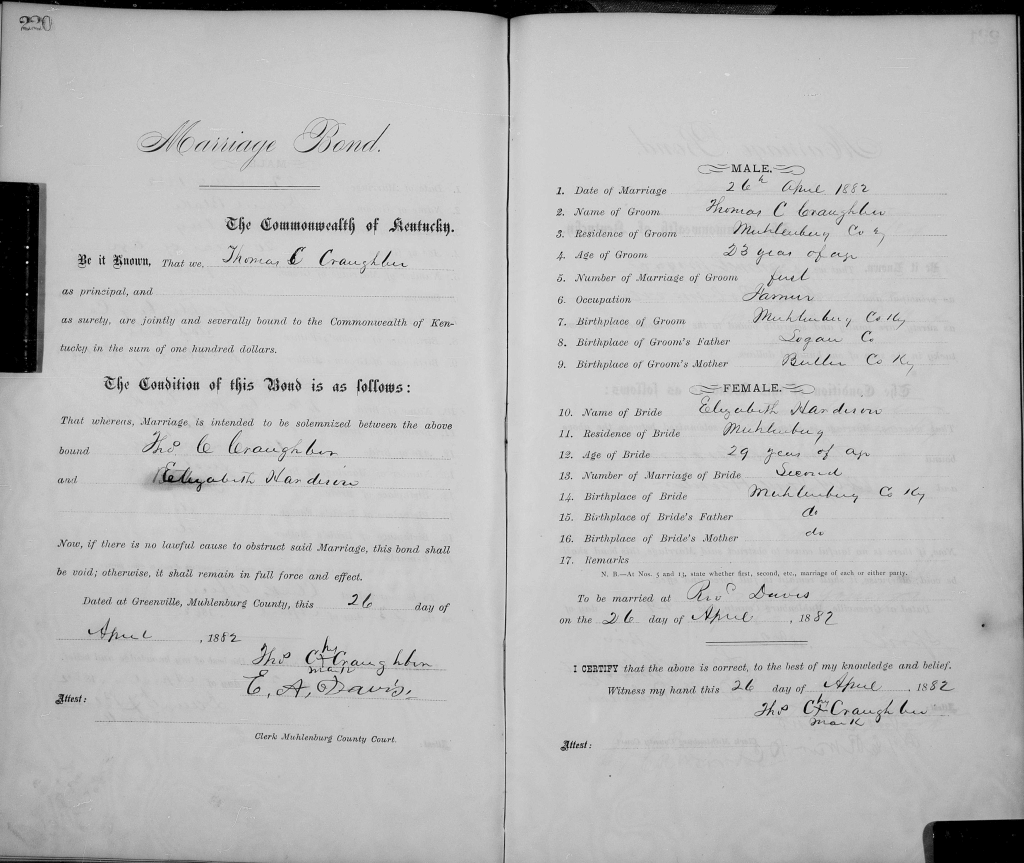 220
Marriage Bond.
The Commonwealth of Kentucky.
Be it Known, That we, Thomas C Craughber
as principal, and
as surety, are jointly and severally bound to the Commonwealth of Ken-
tucky in the sum of one hundred dollars.
The Condition of this Bond is as follows:
That whereas, Marriage is intended to be solemnized between the above
bound Thos C Craughber
and Elizabeth Hardison
Now, if there is no lawful cause to obstruct said Marriage, this bond shall
be void; otherwise, it shall remain in full force and effect.
Dated at Greenville, Muhlenburg County, this 26 day of
April, 1882
Thos C his x mark Craughber
E. A. Davis.
Attest:
Clerk Muhlenburg County Court.
MALE.
1. Date of Marriage 26th April 1882
2. Name of Groom Thomas C Craughber
3. Residence of Groom Muhlenburg Co Ky
4. Age of Groom 23 years of age
5. Number of Marriage of Groom first
6. Occupation Farmer
7. Birthplace of Groom Muhlenburg Co Ky
8. Birthplace of Groom's Father Logan Co
9. Birthplace of Groom's Mother Butler Co Ky
FEMALE.
10. Name of Bride Elizabeth Hardison
11. Residence of Bride Muhlenburg
12. Age of Bride 29 years of age
13. Number of Marriage of Bride Second
14. Birthplace of Bride Muhlenburg Co Ky
15. Birthplace of Bride's Father do
16. Birthplace of Bride's Mother do
17. Remarks
N. B.—At Nos. 5 and 13, state whether first, second, etc., marriage of each or either party.
To be married at Davis
on the 26 day of April, 1882
I CERTIFY that the above is correct, to the best of my knowledge and belief.
Witness my hand this 26 day of April, 1882
Thos C his x mark Craughber
Attest: